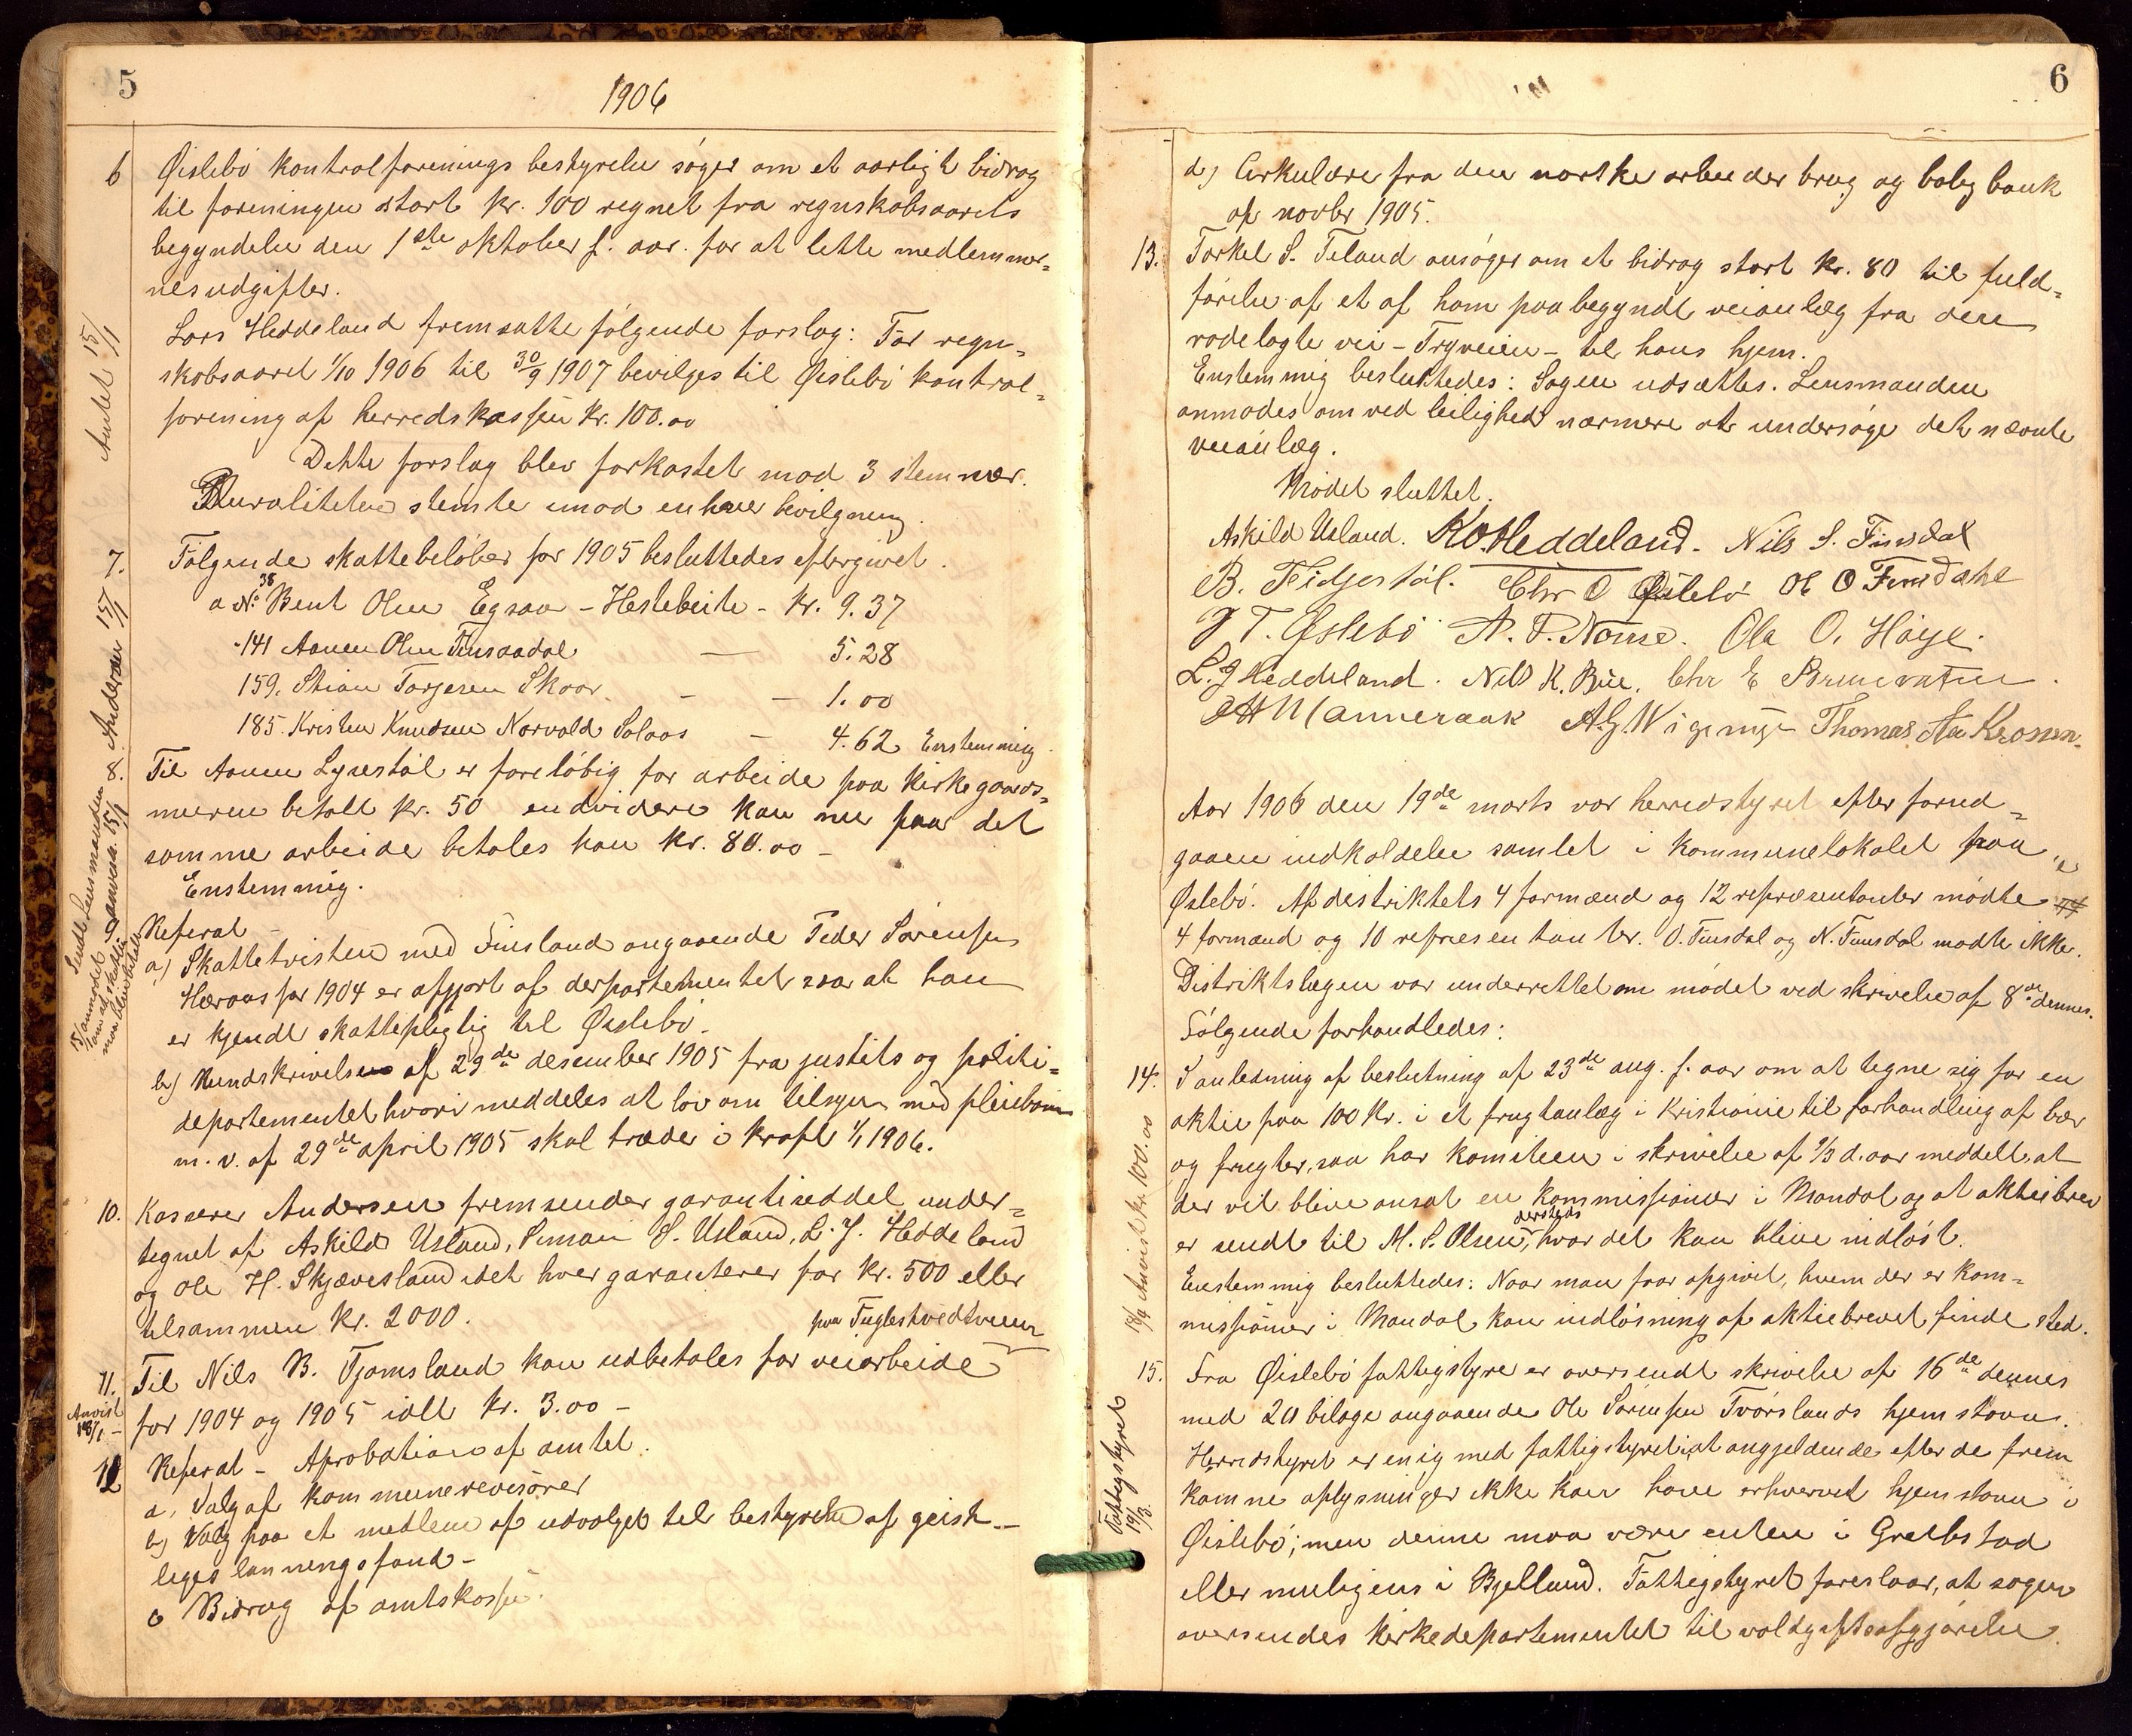 5
1906
6 Øislebö kontrolforenings bestyrelse söger om et aarligt bidrag
til foreningen stort kr. 100 regnet fra regnskabsaarets
begyndelse den 1ste oktober f. aar. for at lette medlemmer=
nes udgifter.
Amtet 15/1
Lars Heddeland fremsatte fölgende forslag: For regn=
skabsaaret 1/10 1906 til 30/9 1907 bevilges til Øislebö kontrol=
forening af herredskassen kr. 100.00
Dette forslag blev forkastet mod 3 stemmer.
Pluraliteten stemte imod enhver bevilgning.
7. Fölgende skattebelöber for 1905 besluttedes eftergivet.
Andersen 15/1
a No 38 Bent Olsen Egsaa - Hestebeite - kr. 9.37
- 141 Aanen Olsen Finsaadal — 5.28
159. Stian Torjesen Skaar - — 1.00
185. Kristen Knudsen Norvald Solaas - 4.62 Enstemmig.
8. Til Aanen Lyrestöl er foreløbig for arbeide paa kirkegaards=
muren betalt kr. 50 endvidere kan nu paa det
samme arbeide betales ham kr. 80.00 -
Enstemmig.
Sendt lensmanden
anvisn. 15/1
9 Referat -
a) Skattetvisten med Finsland angaaende Peder Sörensen
Heraas for 1904 er afgjort af departementet saa at han
er kjendt skattepligtig til Øislebö.
b) Rundskrivelse af 29de desember 1905 fra justits og politi=
departementet hvori meddeles at lov om tilsyn med pleiebørn
m. v. af 29de april 1905 skal træde i kraft 1/1 1906.
10. Kasserer Andersen fremsender garantiseddel under=
tegnet af Askild Usland, Simon S. Usland, L. J. Heddeland
og Ole H. Skjævesland idet hver garanterer for kr. 500 eller
tilsammen kr. 2000.
paa Fuglestvedtveien
11. Til Nils B. Tjomsland kan udbetales for veiarbeide
Anvist 18/1 -
for 1904 og 1905 ialt kr. 3.00 -
12 Referat - Aprobation af amtet.
a, Valg af kommunerevisorer
b) Valg paa et medlem af udvalget til bestyrelse af geist-
liges lønningsfond -
c Bidrag af amtskassen.
6
d) Cirkulære fra den norske arbeider brug og bolig bank
af novbr 1905.
13. Torkel S. Teland ansöger om et bidrag stort kr. 80 til fuld=
förelse af et af ham paabegyndt veianlæg fra den
rodelagte vei - Tryveien - til hans hjem.
Enstemmig besluttedes: Sagen udsættes. Lensmanden
anmodes om ved leilighed nærmere at undersöge det nævnte
veianlæg.
Mödet sluttet.
Askild Usland. K O Heddeland. Nils S. Finsdal
B. Fidjestöl. Chr O Øislebö Ol O Finsdahl
J T. Øslebö A. T. Nome. Ola O. Høye.
L. J Heddeland. Nils K. Bue. Chr E Brunvatne.
Manneraak A. G. Wigemyr Thomas Aa Krossen.
Aar 1906 den 19de marts var herredstyret efter forud=
gaaen indkaldelse samlet i kommunelokalet paa
Øslebö. Af distriktets 4 formænd og 12 repræsentanter mödte
4 formænd og 10 repræsentanter. O. Finsdal og N. Finsdal mödte ikke.
Distriktslægen var underrettet om mödet ved skrivelse af 8de dennes.
Fölgende forhandledes:
14. I anledning af beslutning af 23de aug. f. aar om at tegne sig for en
aktie paa 100 kr. i et frugtanlæg i Kristiania til forhandling af bær
18/4 Anvist kr. 100.00
og frugter, saa har komiteen i skrivelse af 9/3 d. aar meddelt, at
der vil blive ansat en kommissionær i Mandal og at aktiebrev
er sendt til M. S. Olsen, dersteds hvor det kan blive indlöst.
Enstemmig besluttedes: Naar man faar opgivet, hvem der er kom=
missionær i Mandal kan indlösning af aktiebrevet finde sted.
15. Fra Øislebö fattigstyre er oversendt skrivelse af 16de dennes
med 20 bilage angaaende Ole Sörensen Tvörslands hjemstavn.
Fattigstyret 19/3.
Herredstyret er enig med fattigstyret i at angjeldende efter de frem
komne oplysninger ikke kan have erhvervet hjemstavn i
Øislebö; men denne maa være enten i Greibstad
eller muligens i Bjelland. Fattigstyret foreslaar, at sagen
oversendes kirkedepartementet til voldgiftsafgjörelse.